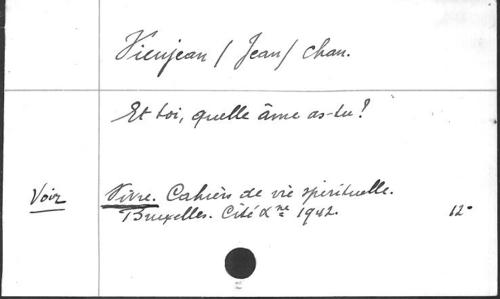 Vieujean / Jean / chan.
Et toi, quelle âme as-tu?
Voir Vivre. Cahiers de vie spirituelle.
Bruxelles. Cité Xne 1942. 12°